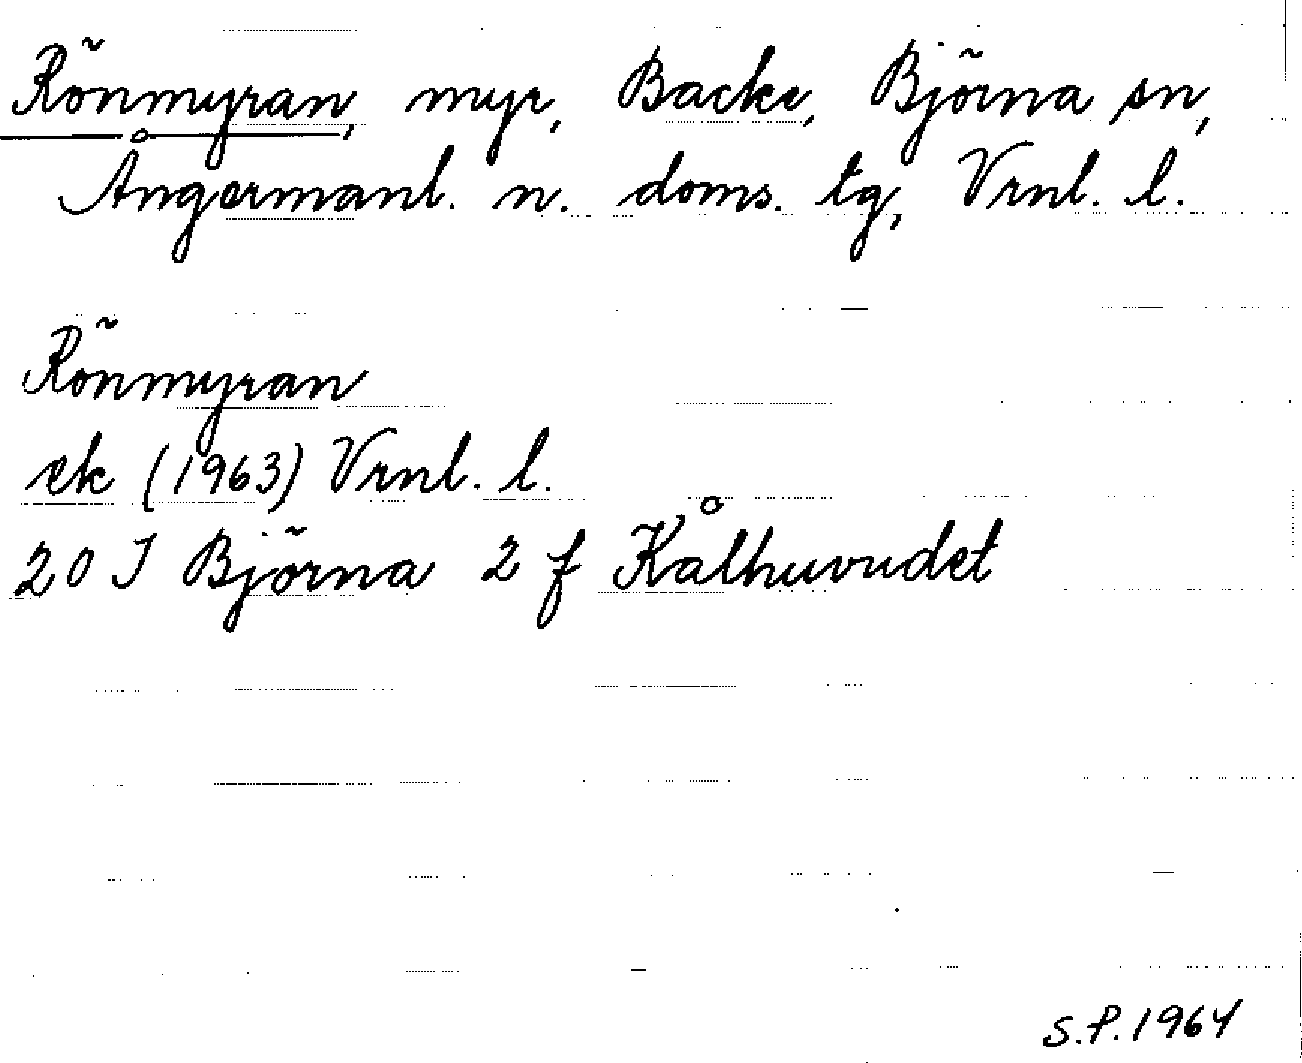 Rönmyran, myr, Backe, Björna sn,
Ångermanl. n. doms. tg, Vrnl. l.
Rönmyran
ek (1963) Vrnl. l.
20 I Björna 2 f Kålhuvudet
S.P. 1964